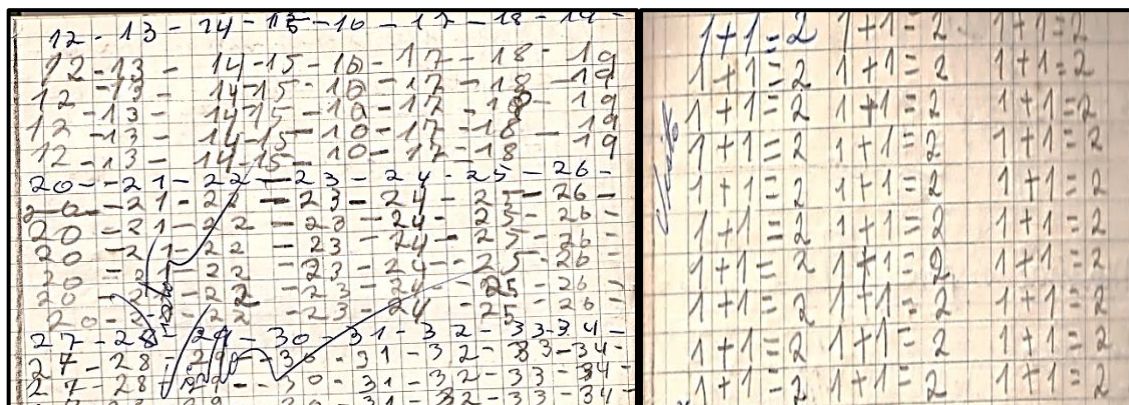 12 - 13 - 14 - 15 - 16 - 17 - 18 - 19 -
12 - 13 - 14 - 15 - 16 - 17 - 18 - 19
12 - 13 - 14 - 15 - 16 - 17 - 18 - 19
12 - 13 - 14 - 15 - 16 - 17 - 18 - 19
12 - 13 - 14 - 15 - 16 - 17 - 18 - 19
12 - 13 - 14 - 15 - 16 - 17 - 18 19
20 - 21 - 22 - 23 - 24 - 25 - 26 -
20 - 21 - 22 - 23 - 24 - 25 - 26 -
20 - 21 - 22 - 23 - 24 - 25 - 26 -
20 - 21 - 22 - 23 - 24 - 25 - 26 -
20 - 21 - 22 - 23 - 24 - 25 - 26 -
20 - 21 - 22 - 23 - 24 - 25 - 26 -
20 - 21 - 22 - 23 - 24 - 25 - 26 -
27 - 28 - 29 - 30 - 31 - 32 - 33 - 34 -
27 - 28 - 29 - 30 - 31 - 32 - 33 - 34 -
27 - 28 - 29 - 30 - 31 - 32 - 33 - 34 -
29 30 - 31 - 32 - 33 - 34 -
1+1=2 1+1=2 1+1=2
1+1=2 1+1=2 1+1=2
1+1=2 1+1=2 1+1=2
1+1=2 1+1=2 1+1=2
1+1=2 1+1=2 1+1=2
1+1=2 1+1=2 1+1=2
1+1=2 1+1=2 1+1=2
1+1=2 1+1=2 1+1=2
1+1=2 1+1=2 1+1=2
1+1=2 1+1=2 1+1=2